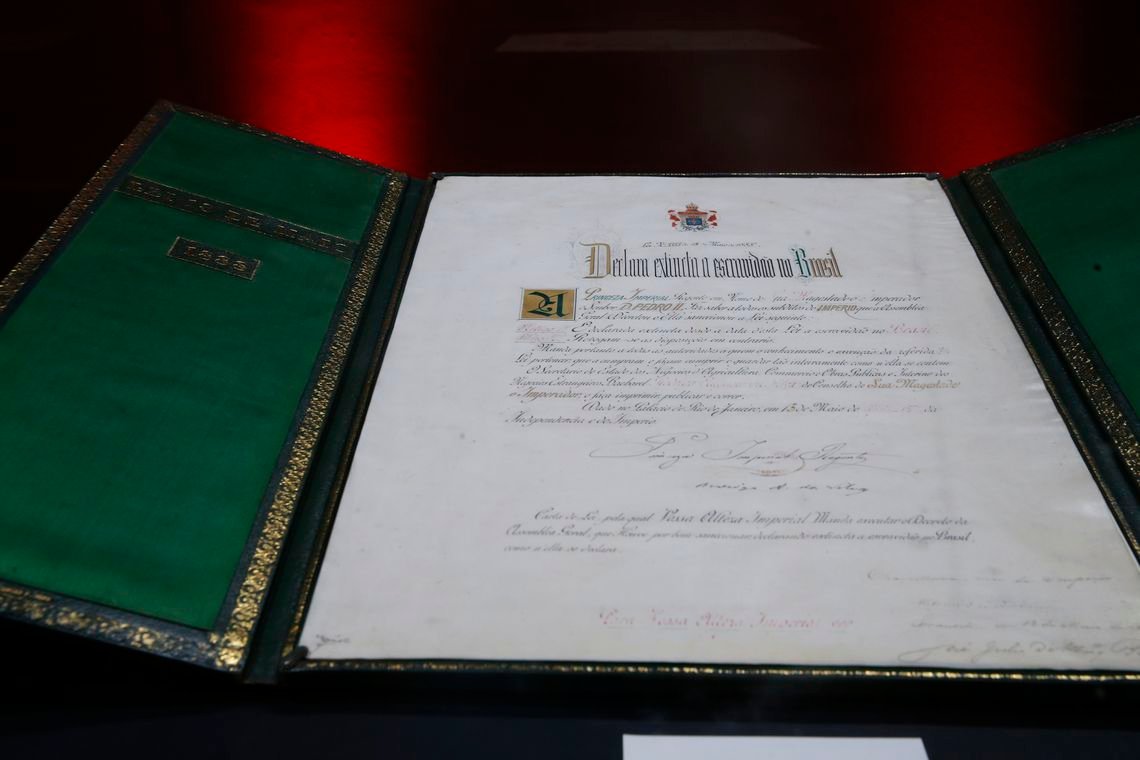 1888
Declara extincta a escravidão no Brasil
A PRINCEZA IMPERIAL Regente em Nome de Sua Magestade o Imperador
o Senhor D. PEDRO II, Faz saber a todos os subditos do IMPERIO que a Assembléa
Geral Decretou e Ella sanccionou a Lei seguinte:
É declarada extincta desde a data desta Lei a escravidão no Brasil.
Revogam-se as disposições em contrario.
Manda portanto a todas as autoridades a quem o conhecimento e execução da referida
Lei pertencer, que a cumpram e façam cumprir e guardar tão inteiramente como n'ella se contem.
O Secretario de Estado dos Negocios d'Agricultura, Commercio e Obras Publicas e Interino dos
Negocios Estrangeiros, Bacharel do Conselho de Sua Magestade
o Imperador, o faça imprimir, publicar e correr.
Dado no Palacio do Rio de Janeiro, em 13 de Maio de da
Independencia e do Imperio.
Princeza Imperial Regente
Rodrigo A. da Silva
Carta de Lei, pela qual Vossa Alteza Imperial Manda executar o Decreto da
Assembléa Geral, que Houve por bem sanccionar declarando extincta a escravidão no Brasil,
como n'ella se declara.
Para Vossa Alteza Imperial ver